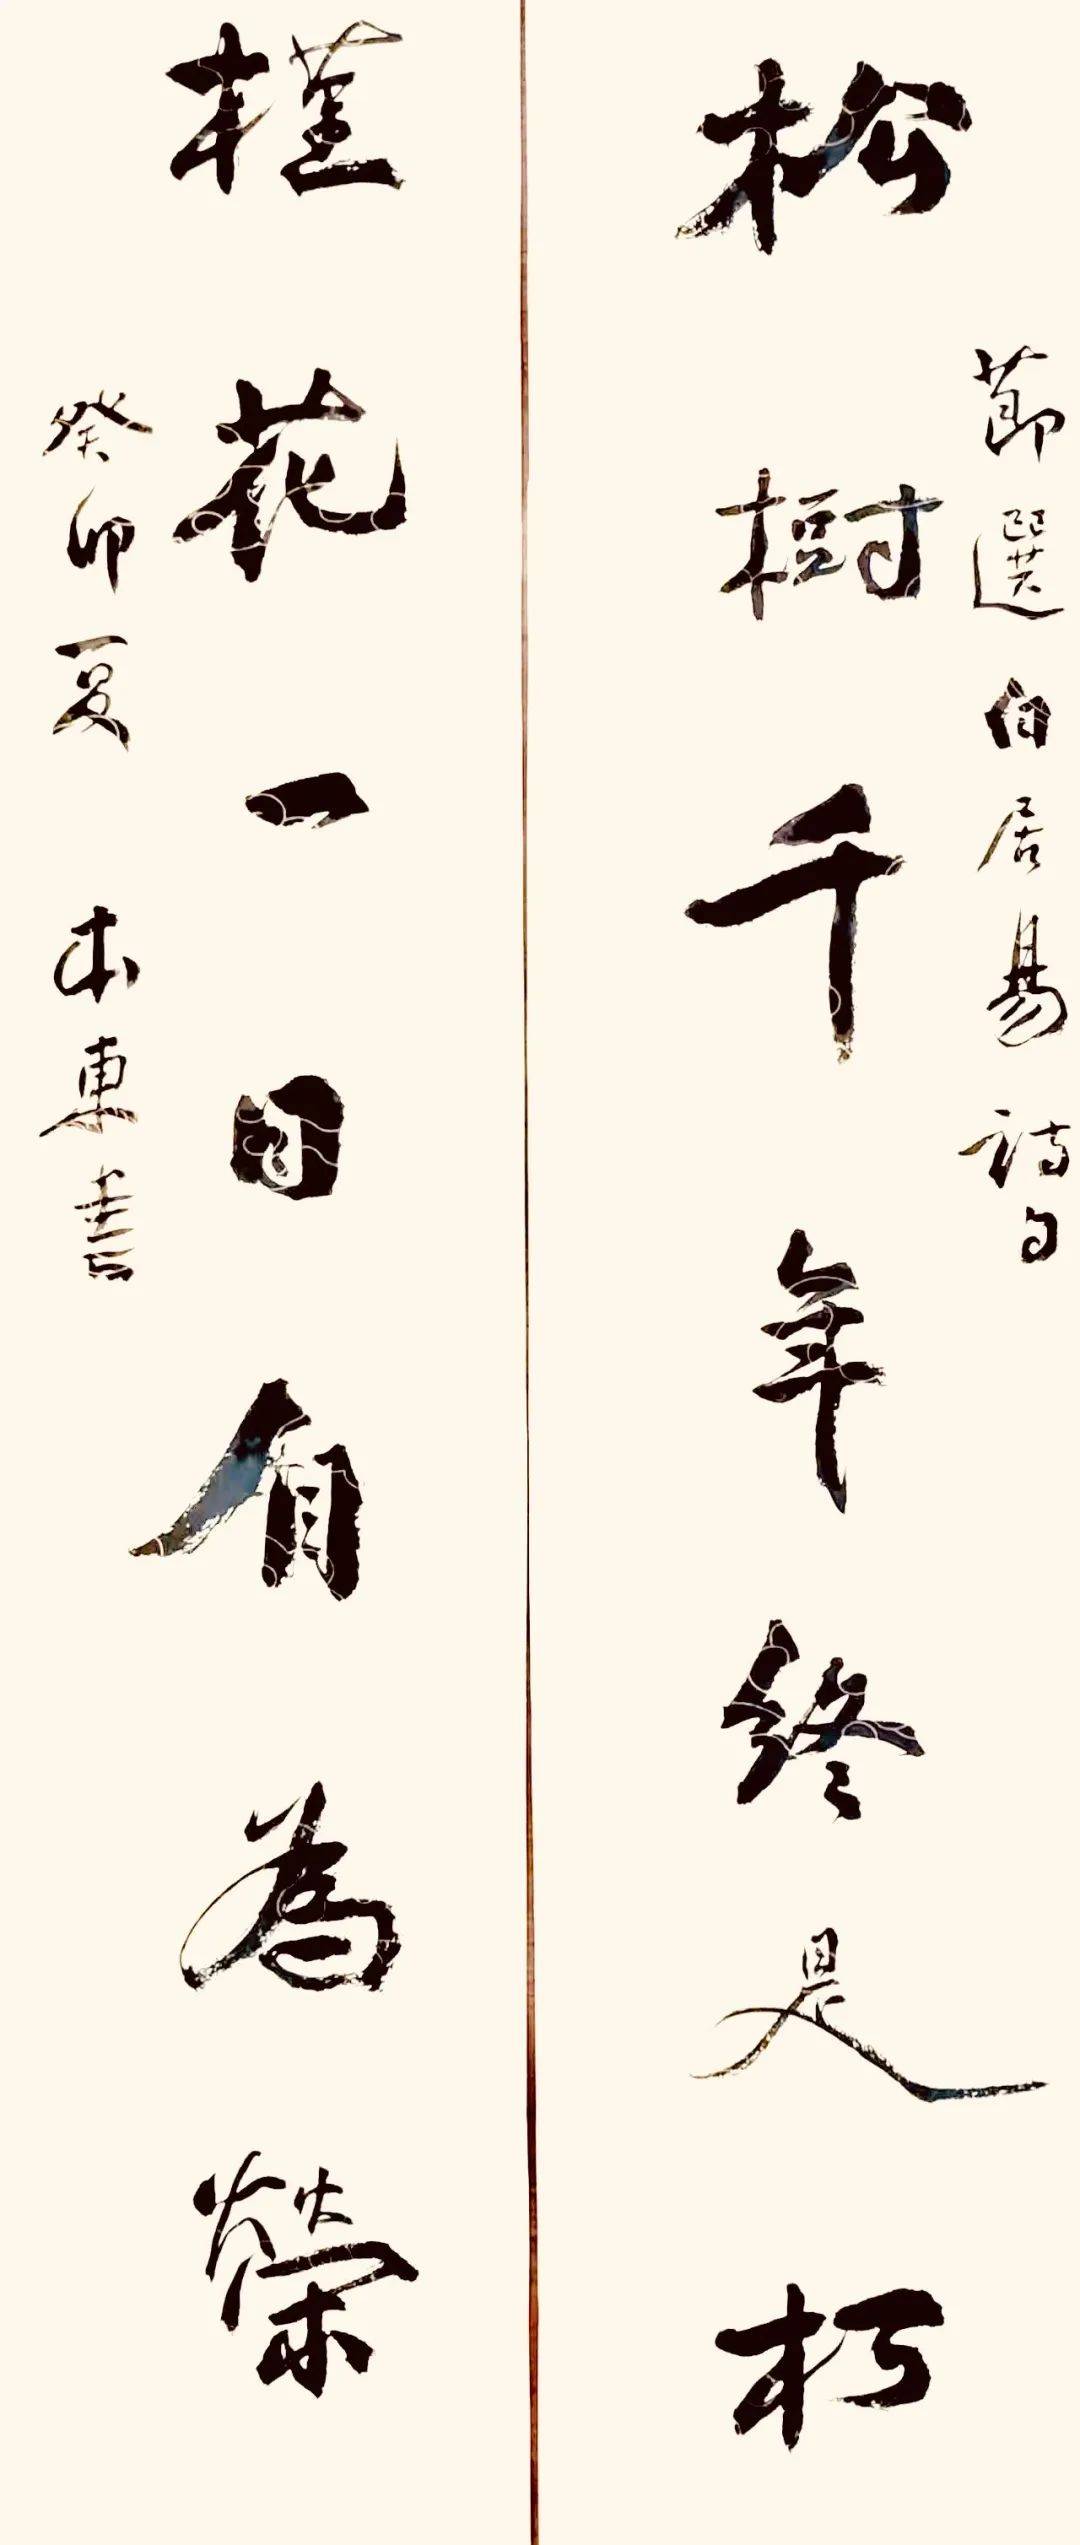 松樹千年終是朽
節選白居易詩句
槿花一日自為榮
癸卯夏 本東書